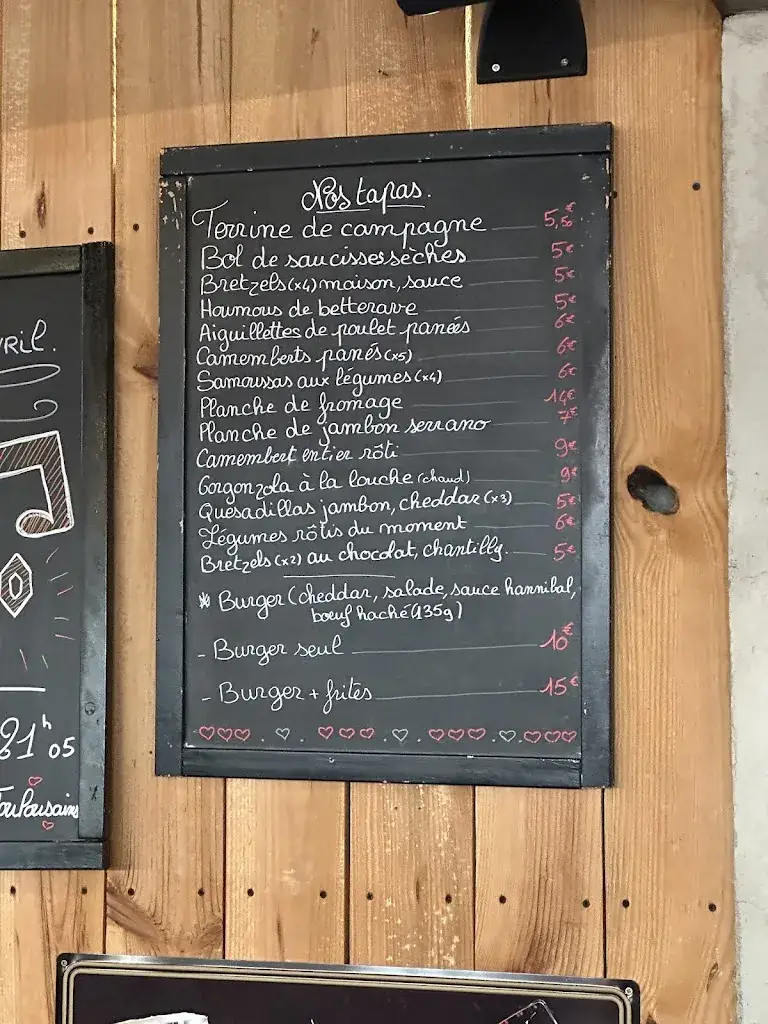 Nos tapas.
Terrine de campagne 5,50€
Bol de saucisses sèches 5€
Bretzels (x4) maison, sauce 5€
Houmous de betterave 5€
Aiguillettes de poulet panées 6€
Camemberts panés (x5) 6€
Samoussas aux légumes (x4) 6€
Planche de fromage 14€
Planche de jambon serrano 7€
Camembert entier rôti 9€
Gorgonzola à la louche (chaud) 9€
Quesadillas jambon, cheddar (x3) 5€
Légumes rôtis du moment 6€
Bretzels (x2) au chocolat, chantilly. 5€
* Burger (cheddar, salade, sauce hannibal,
bœuf haché (135g)
- Burger seul 10€
- Burger + frites 15€
vril.
21h05
Toulousains